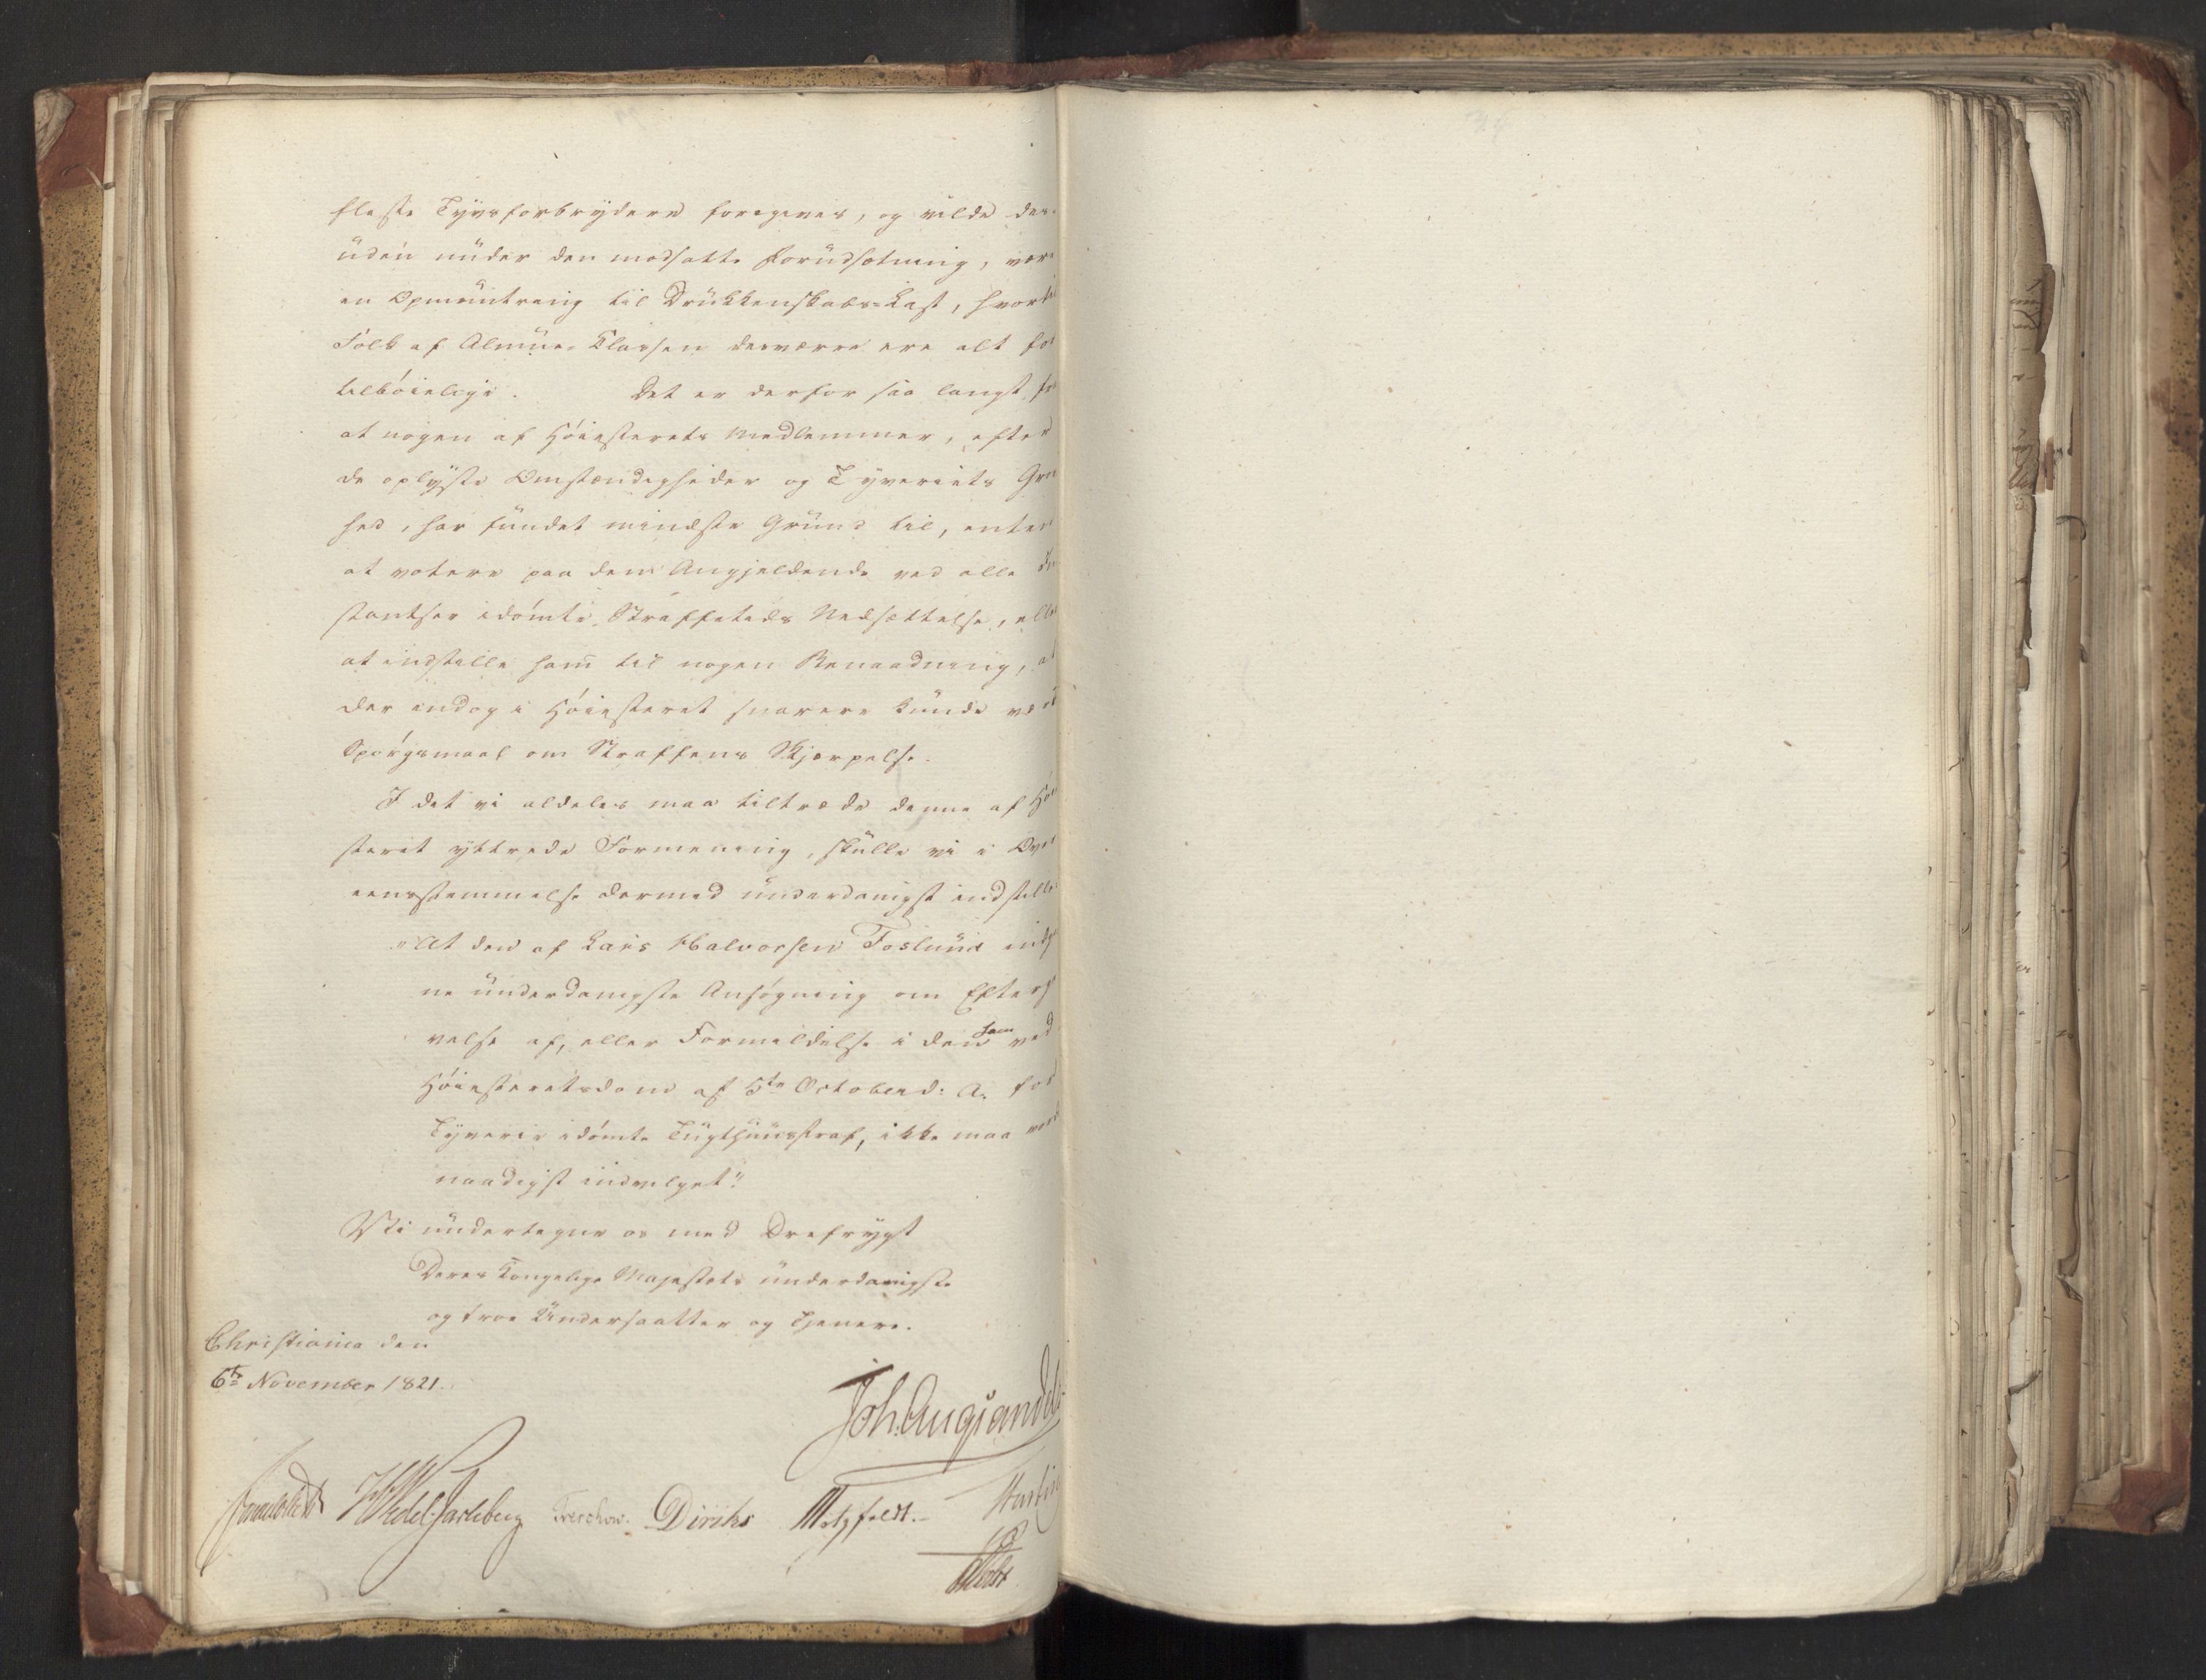 fleste Tyvsforbrydere foregives, og vilde des-
uden under den modsatte Forudsætning, være
en Opmuntring til Drukkenskabs-Last, hvortil
Folk af Almue-Classen desværre ere alt for
tilbøielige. Det er derfor saa langt fra
at nogen af Høiesterets Medlemmer, efter
de oplyste Omstændigheder og Tyveriets Grov
hed, har fundet mindste Grund til, enten
at votere paa den Angjeldende ved alle In
stantser idømte Straffetids Nedsættelse, eller
at indstille ham til nogen Benaadning, at
der endog i Høiesteret snarere kunde være
Spørgsmaal om Straffens Skjærpelse.
I det vi aldeles maa tiltræde denne af Høie
steret yttrede Formening, skulle vi i Over
eensstemmelse dermed underdanigst indstille:
"At den af Lars Halvorsen Foslund indgiv
ne underdanigste Ansøgning om Eftergi
velse af, eller Formildelse i den som ved
Høiesteretsdom af 5te October d: A. for
Tyverie idømte Tugthuusstraf, ikke maa vorde
naadigst indvilget."
Vi undertegne os med Drefrygt
Deres Kongelige Majestæts underdanigste
og troe Undersaatter og Tjenere.
Christiania den
6te November 1821.
Joh. Aug. Sandels
Sommerhielm HWedel Jarlsberg Treschow. Diriks Motzfeldt. Hartin